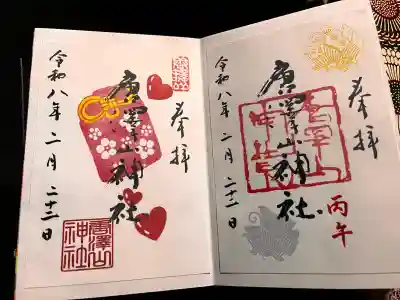 奉拝
丙午
唐澤山神社
唐澤山
神社
令和八年二月二十二日
奉拝
唐澤山神社
唐澤山
神社
令和八年二月二十二日